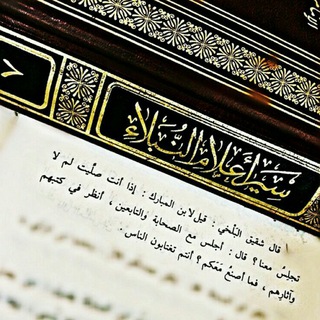 ٧
سير أعلام النبلاء
قال شقيق البلخي : قيل لابن المبارك : إذا أنت صليت لم لا
تجلس معنا ؟ قال : أجلس مع الصحابة والتابعين ، أنظر في كتبهم
وآثارهم ، فما أصنع معكم ؟ أنتم تغتابون الناس .